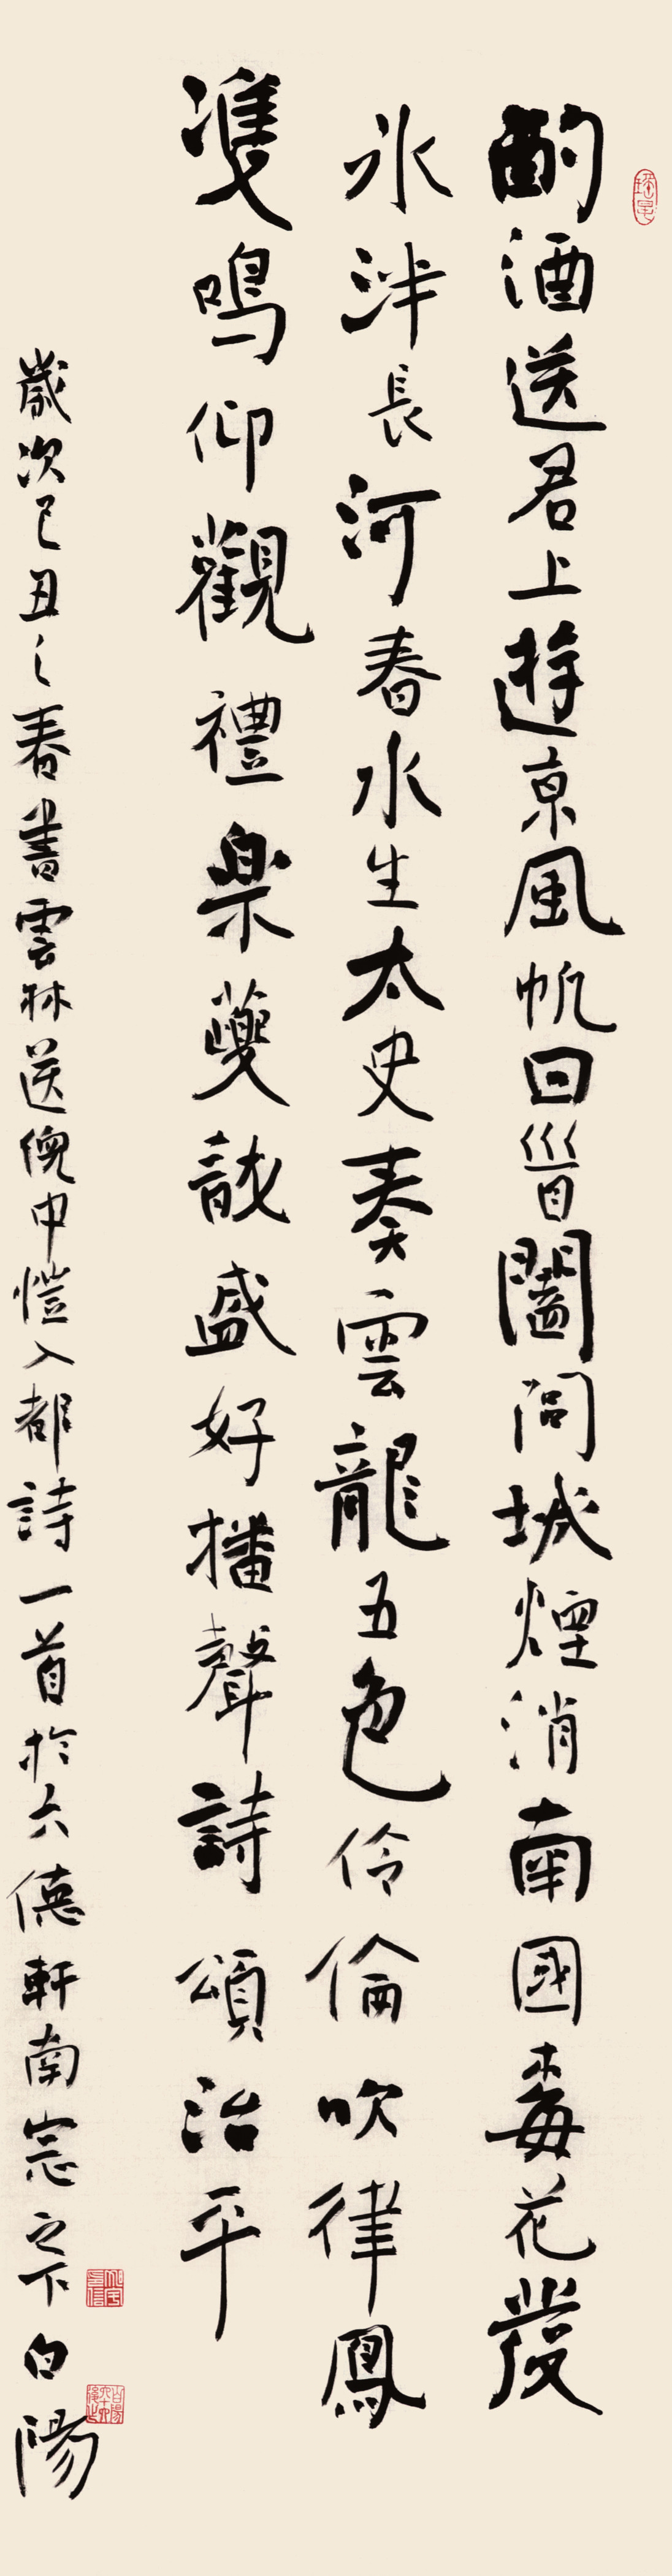 酌酒送君上遊京風帆回首闔閭城煙消南國梅花發
氷泮長河春水生太史奏雲龍五色伶倫吹律鳳
雙鳴仰觀禮樂夔龍盛好播聲詩頌治平
歲次己丑之春書雲林送倪中愷入都詩一首於六德軒南窓之下白陽